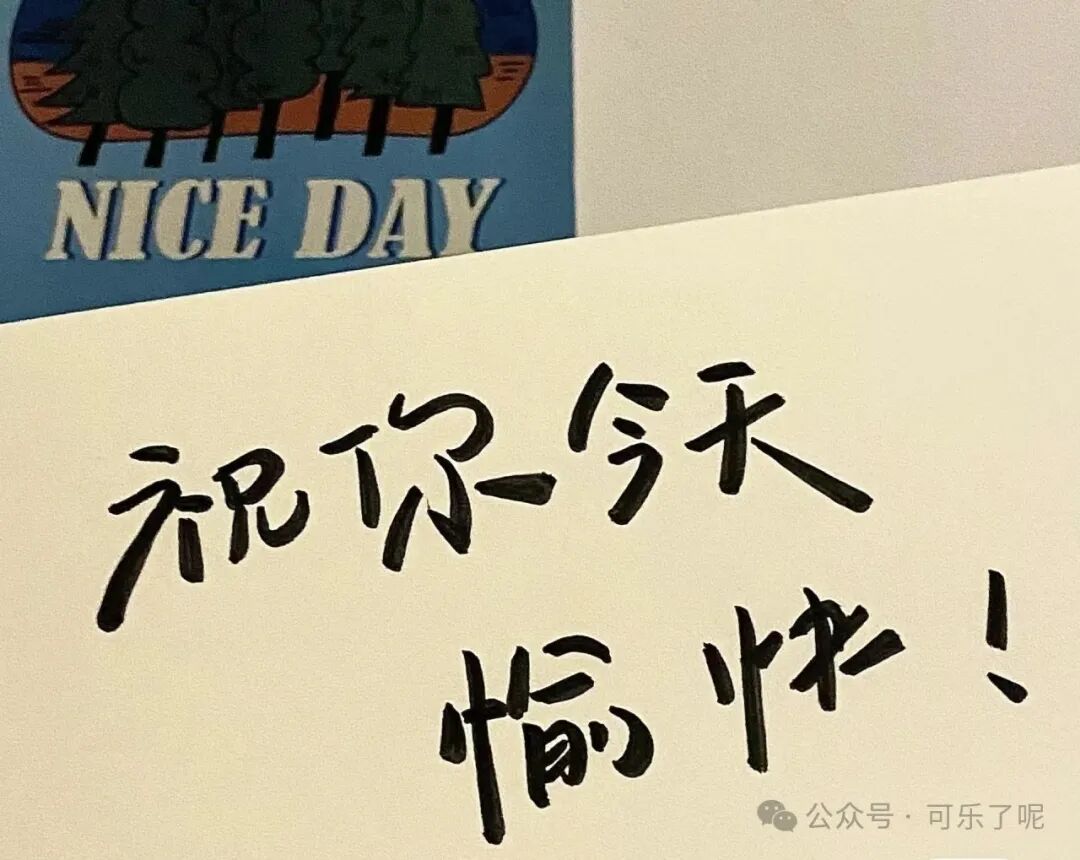 NICE DAY
祝你今天
愉快！
公众号·可乐了呢